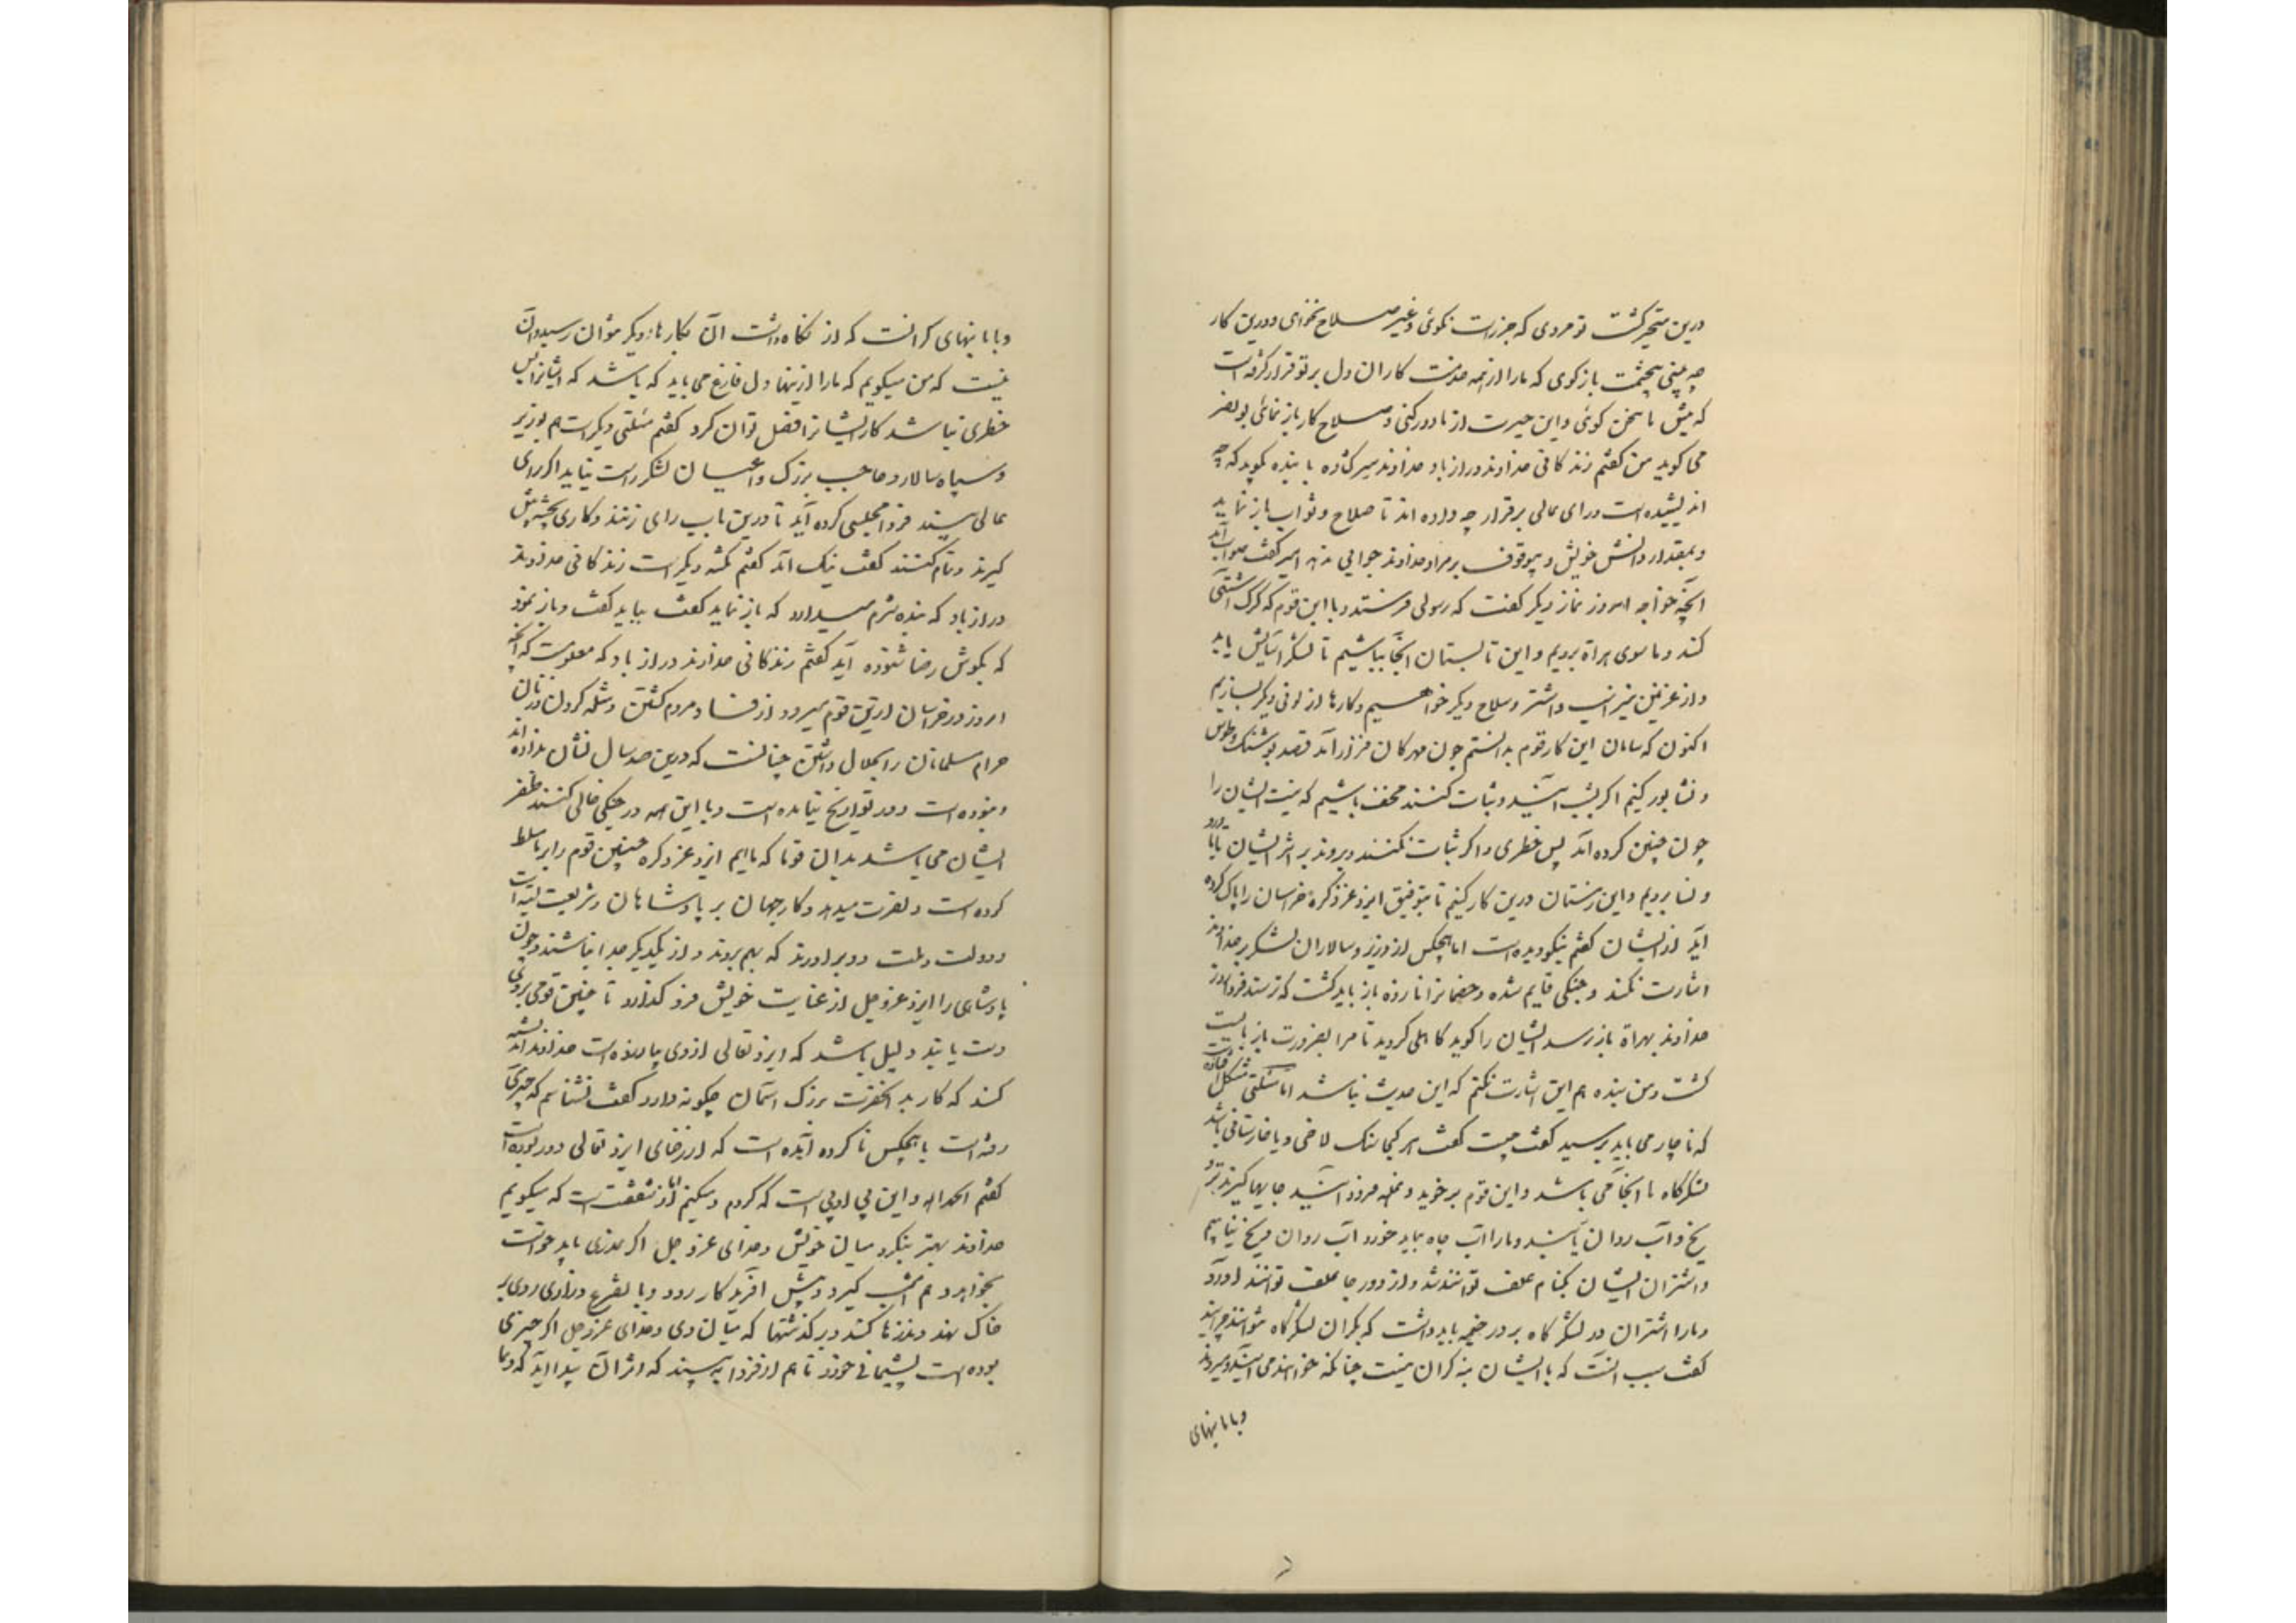 درین متحیر گشت تو مردی که جز راست نکوئی و غیر صلاح نخواهی و درین کار
چه بینی بیحشمت بازکوی که ما را از همه خدمت کاران دل بر تو قرار کرفته است
که پیش ما سخن کوئی و این حیرت از ما دور کنی و صلاح کار باز نمائی بو نصر
می کوید من کفتم زندکانی خداوند دراز باد خداوند سر کشاده با بنده بکوید که چه
اندیشیده است و رای عالی برقرار چه داده اند تا صلاح و ثواب باز نماید
و بمقدار دانش خویش و بیوقوف بر مراد خداوند جوابی ندهد امیر کفت صواب آمد
آنچه خواجه امروز نماز دیکر کفت که رسولی فرستند و با این قوم که کرک آشتی
کند و ما سوی هراة برویم و این تابستان آنجا بباشیم تا لشکر آسایش یابد
و از غزنین نیز اسب و اشتر و سلاح دیکر خواهیم و کارها از لونی دیکر بسازیم
اکنون که سامان این کار قوم بدانستیم چون مهرکان فراز آمد قصد بوشنک و طوس
و نشابور کنیم اکر پیش آیند و ثبات کنند مخف باشیم که نیست ایشان را
چون چنین کرده آمد پس خطری و اکر ثبات نکنند و بروند بر اثر ایشان تا باورد
و نسا برویم و این زمستان درین کار کنیم تا بتوفیق ایزد عز ذکره خراسان را پاک کرده
آید از ایشان کفتم نیکو دیده است اما هیچکس از وزیر و سالاران لشکر بر خداوند
اشارت نکند و جنکی قایم شده و خصمانرا نا زده باز باید کشت که ترسند فردا روز
خداوند بهراة باز رسد ایشان را کوید کاهلی کردید تا مرا بضرورت باز بایست
کشت و من بنده هم این اشارت نکنم که این حدیث نباشد اما مسئلتی مشکل افتاده است
که ناچار می باید پرسید کفت چیست کفت هر کجا سنک لاخی و یا خارستانی باشد
لشکرکاه ما آنجا می باشد و این قوم بر خوید و غله فرود آیند جایها کیرند بتر و
یخ و آب روان یابند و ما را آب چاه باید خورد آب روان و یخ نیابیم
و اشتران ایشان بکنام علف توانند شد و از دور جا علف توانند آورد
و ما را اشتران در لشکرکاه بر در خیمه باید داشت که بکران لشکرگاه نتوانند چرانید
کفت سبب آنست که با ایشان بنه کران نیست چنانکه خواهند می آیند و میروند
و با ما بنهای
و با ما بنهای کرانست که از نکاه داشت آن بکارها دیکر نتوان رسید و آن
نیست که من میکویم که ما را از بنها دل فارغ می باید که باشد که ایشانرا بس
خطری نباشد کار ایشانرا فصل توان کرد کفتم مسئلتی دیکر است هم بوزیر
و سپاه سالار و حاجب بزرک و اعیان لشکر راست نیاید اکر رای
عالی بیند فردا مجلسی کرده آید تا درین باب رای زنند و کاری پخته پیش
کیرند و تمام کنند کفت نیک آمد کفتم نکته دیکر است زندکانی خداوند
دراز باد که بنده شرم میدارد که باز نماید کفت بباید کفت و باز نمود
که بکوش رضا شنوده آید کفتم زندکانی خداوند دراز باد که معلومست که آنچه
امروز در خراسان ازین قوم میرود از فساد و مردم کشتن و مثله کردن و زنان
حرام مسلمانان را بحلال داشتن چنانست که درین صد سال نشان نداده اند
و نبوده است و در تواریخ نیامده است و با این همه در جنکی خالی کنند ظفر
ایشان می باشد بدان قوما که ماایم ایزد عز ذکره چنین قوم را بر ما مسلط
کرده است و نصرت میدهد و کار جهان بر پادشاهان و شریعت بسته است
و دولت و ملت دو برادرند که بهم بروند و از یکدیکر جدا نباشند و چون
پادشاهی را ایزد عز و جل از عنایت خویش فرو کذارد تا چنین قومی بر وی
دست یابند دلیل باشد که ایزد تعالی از وی بیازرده است خداوند اندیشه
کند که کار بدانحضرت بزرک آسمان چکونه دارد کفت نشناسم که چیزی
رفته است با هیچکس تا کرده آمده است که از رضای ایزد تعالی دور بوده است
کفتم الحمد الله و این بی ادبی است که کردم و میکنم اما از شفقت است که میکویم
خداوند بهتر بنکرد میان خویش و خدای عز و جل اکر عذری باید خواست
بخواهد و هم امشب کیرد و پیش آفریدکار رود و با تضرع و زاری روی بر
خاک نهد و نذرها کند و بر کذشتها که میان وی و خدای عز و جل اکر چیزی
بوده است پشیمانی خورد تا هم از فردا ببیند که اثر آن پیدا آید که دعا